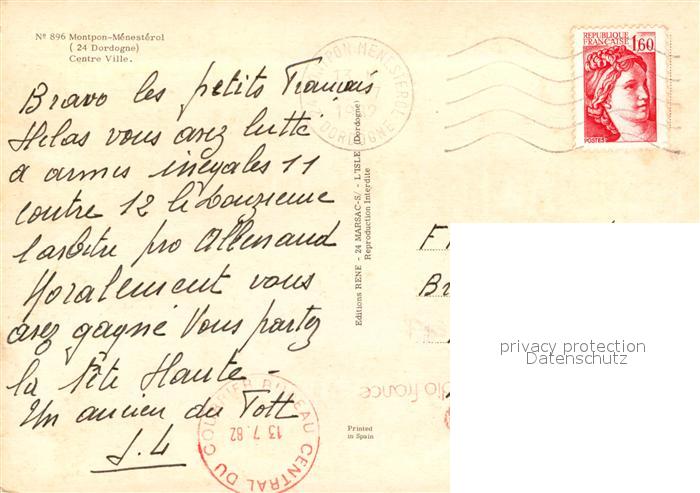 Nº 896 Montpon-Ménestérol
( 24 Dordogne)
Centre Ville.
Bravo les petits Français
Helas vous avez lutté
a armes inégales 11
contre 12 le Douzieme
l'arbitre pro Allemand
Moralement vous
avez gagné Vous partez
la Tête Haute -
Un ancien du Foot
J.L
MONTPON MENESTEROL
13
1982
24 DORDOGNE
REPUBLIQUE
FRANÇAISE
1,60
POSTES
Editions RENE - 24 MARSAC-S/- L'ISLE (Dordogne)
Reproduction Interdite
F
B
privacy protection
Datenschutz
dio france
COURRIER BUREAU CENTRAL DU
13 7 82
Printed
in Spain